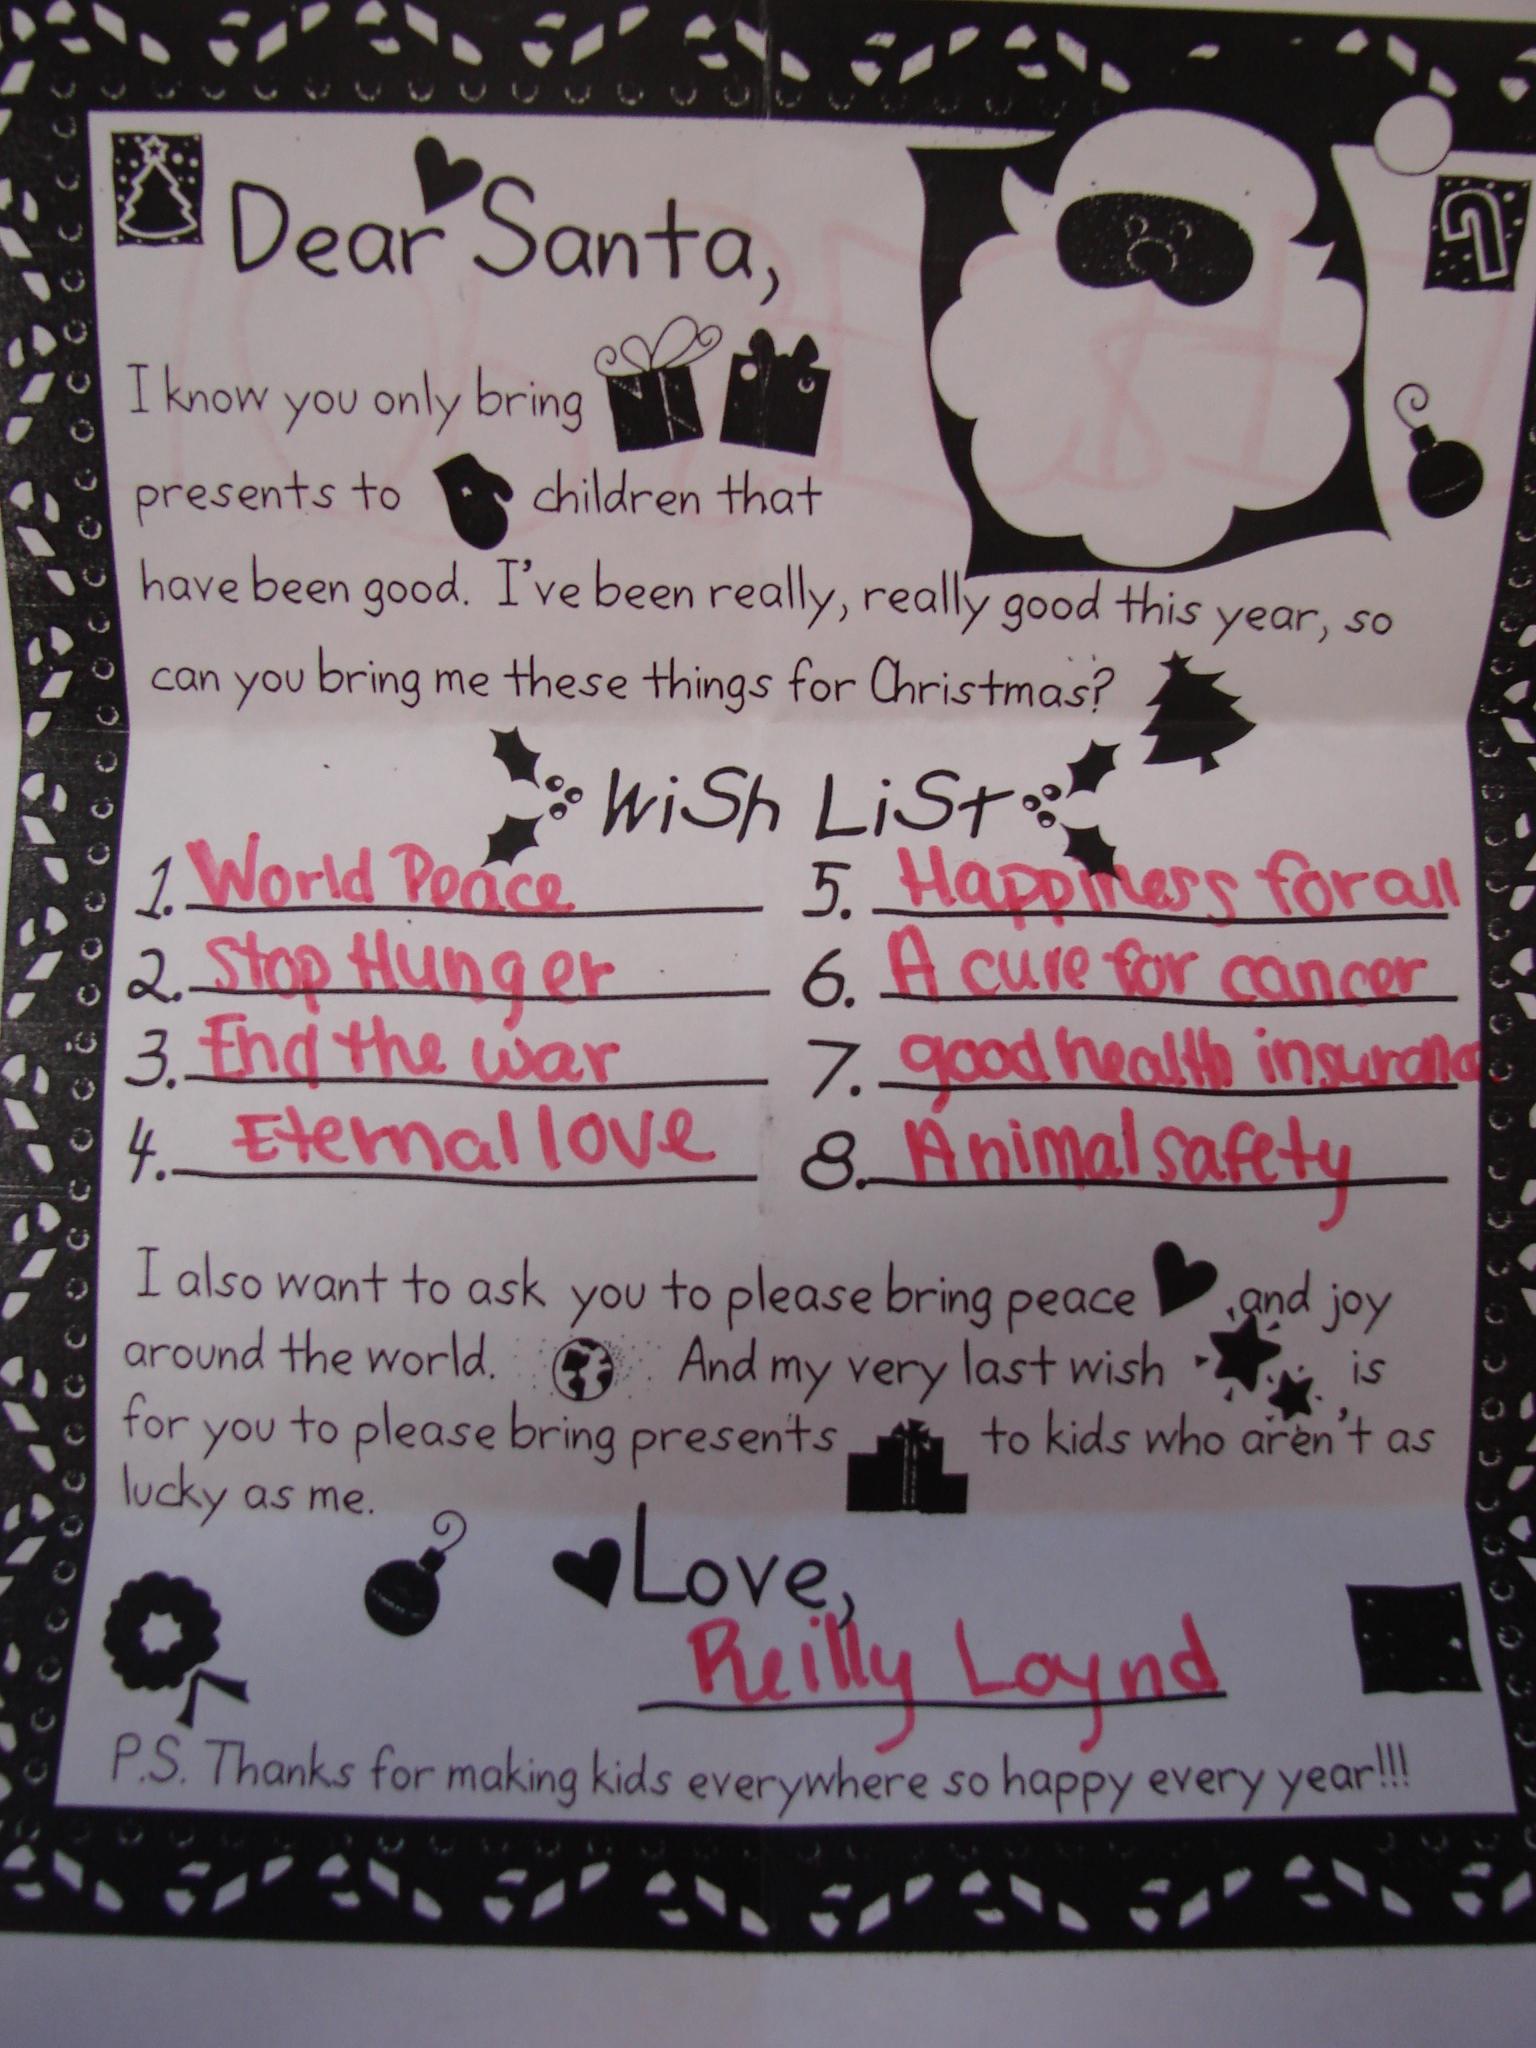 Dear Santa,
I know you only bring
presents to children that
have been good. I've been really, really good this year, so
can you bring me these things for Christmas?
Wish List
1. World Peace
2. Stop Hunger
3. End the war
4. Eternal love
5. Happiness for all
6. A cure for cancer
7. good health insurance
8. Animal safety
I also want to ask you to please bring peace and joy
around the world. And my very last wish is
for you to please bring presents to kids who aren't as
lucky as me.
Love,
Reilly Loynd
P.S. Thanks for making kids everywhere so happy every year!!!